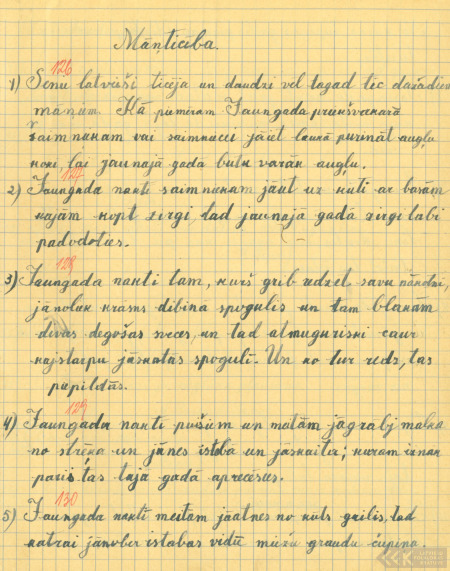 Māņticība.
126
1) Senu latvieši ticēja un daudzi vēl tagad tic dažādiem
māņam. Kā piemēram Jaungada priekšvakarā
saimniekam vai saimniecei jāiet laukā purināt augļu
koki, lai jaunajā gadā būtu vairāk augļu.
127
2) Jaungada nakti saimniekam jāiet uz kuti ar basām
kajām kopt zirgi, tad jaunajā gadā zirgi labi
padodoties.
128
3) Jaungada nakti tam, kurš grib redzēt savu nākotni,
jānoliek krāsns dibinā spogulis un tam blakām
divas degošas sveces, un tad atmuguriski caur
kājstarpu jāskatās spogulī. Un ko tur redz, tas
piepildās.
129
4) Jaungada nakti puišiem un meitām jāgrābj malka
no strēķa un jānes istabā un jāskaita; kuram iznāk
pāris, tas tajā gadā aprecēsies.
130
5) Jaungada nakti meitām jāatnes no kūts gailis, tad
katrai jānober istabas vidū miežu graudu čupiņa.